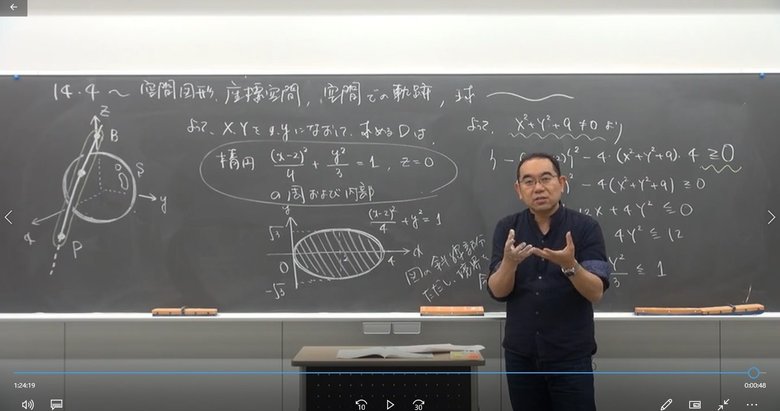 14.4 ~ 空間図形, 座標空間, 空間での軌跡, 球
よって, X, Yをx, yになおして, 求めるDは,
楕円 (x-2)²/4 + y²/3 = 1, z=0
の周および内部
z
B
S
y
x
P
y
√3
O
2
4
x
-√3
(x-2)²/4 + y² = 1
図の斜線部分
ただし, 境界
よって, X²+Y²+9 ≠ 0 より
-4・(X²+Y²+9)・4 ≧ 0
-4(X²+Y²+9) ≧ 0
12X + 4Y² ≦ 0
4Y² ≦ 12
Y²/3 ≦ 1
1:24:19
0:00:48
10
30